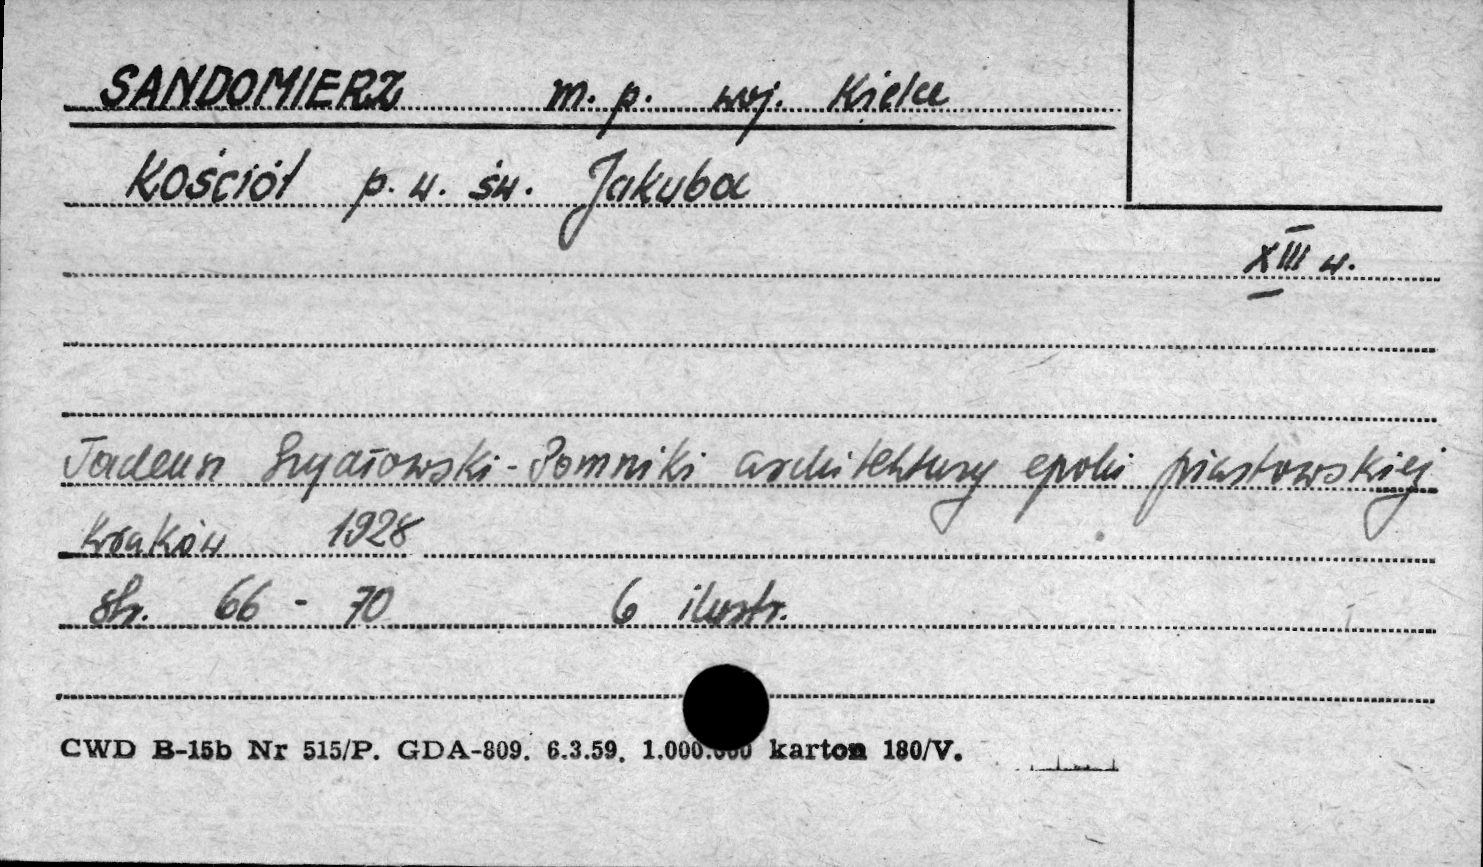 SANDOMIERZ m. p. woj. Kielce
Kościół p. w. św. Jakuba
XIII w.
Tadeusz Szydłowski - Pomniki architektury epoki piastowskiej
Kraków 1928
str. 66 - 70 6 ilustr.
CWD B-15b Nr 515/P. GDA-809. 6.3.59. 1.000.000 karton 180/V.